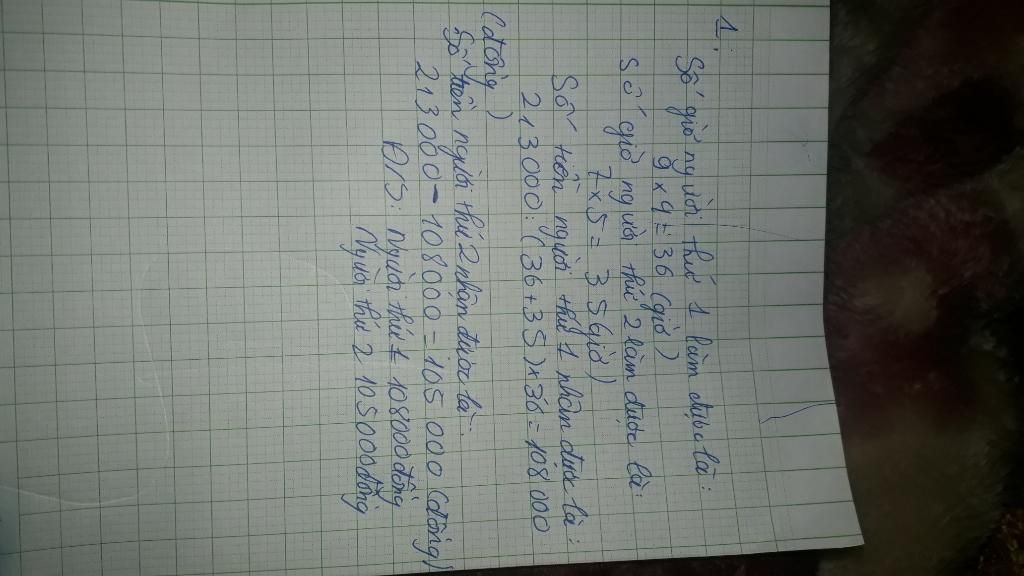 1.
Số giờ người thứ 1 làm được là:
9 x 4 = 36 (giờ)
Số giờ người thứ 2 làm được là:
7 x 5 = 35 (giờ)
Số tiền người thứ 1 nhận được là:
213000: (36+35) x 36 = 108 000
(đồng)
Số tiền người thứ 2 nhận được là:
213 000 - 108000 = 105 000 (đồng)
Đ/S: người thứ 1 108000 đồng
Người thứ 2 105000 đồng